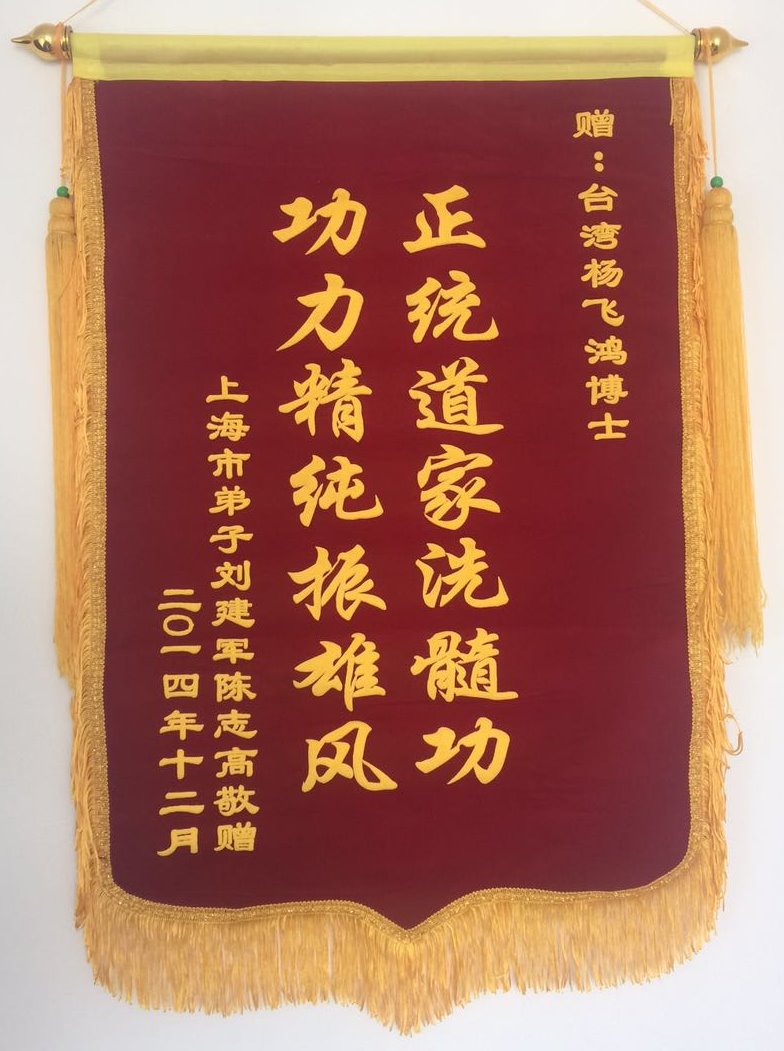 赠：台湾杨飞鸿博士
正统道家洗髓功
功力精纯振雄风
上海市弟子刘建军陈志高敬赠
二〇一四年十二月